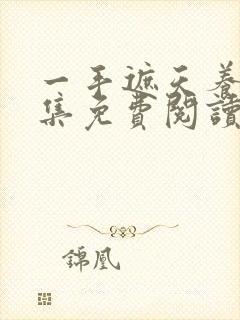 一手遮天養
集免費閱讀
錦凰